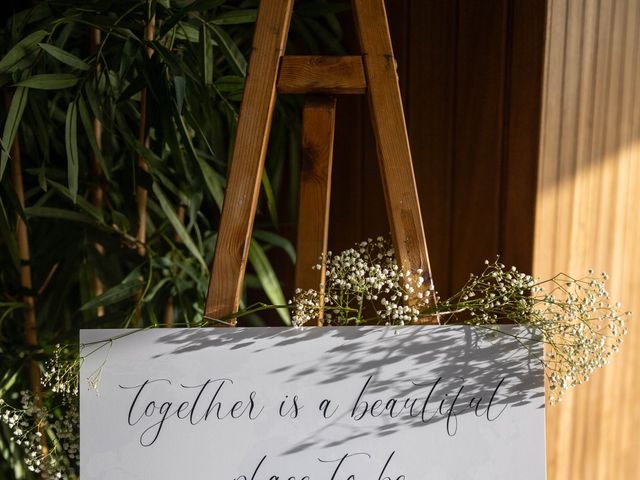 together is a beautiful
place to be